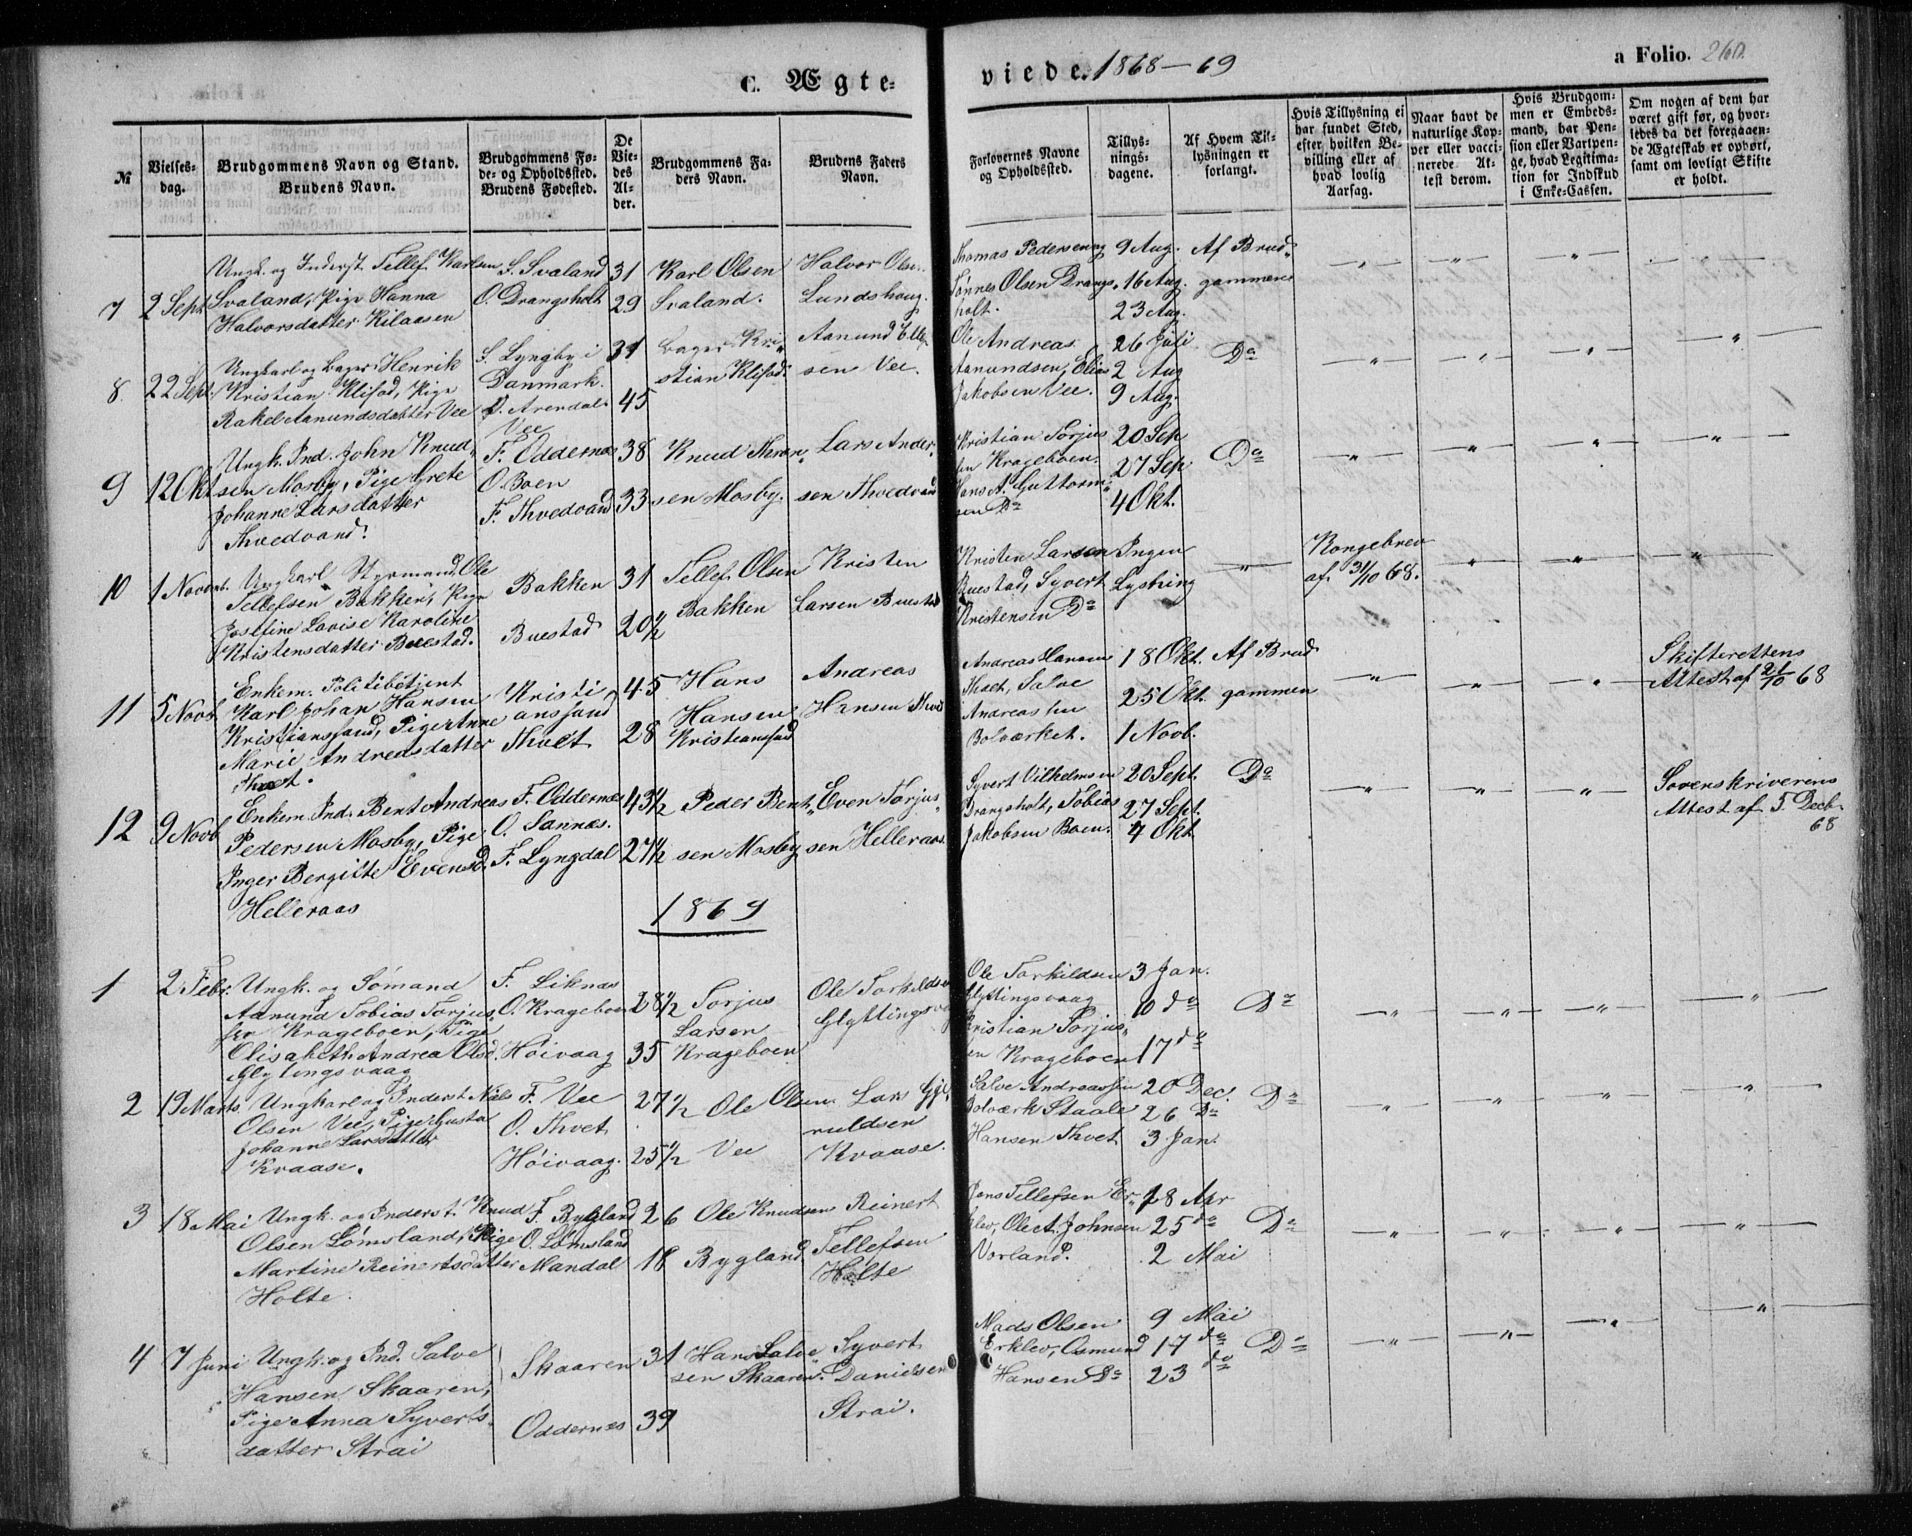 C. Ægteviede. 1868-69
a Folio. 260.
№
Vielsesdag.
Brudgommens Navn og Stand. Brudens Navn.
Brudgommens Føde- og Opholdssted. Brudens Fødested.
De Viedes Alder.
Brudgommens Faders Navn.
Brudens Faders Navn.
Forlovernes Navne og Opholdssted.
Tillysningsdagene.
Af Hvem Tillysningen er forlangt.
Hvis Tillysning ei har fundet Sted, efter hvilken Bevilling eller af hvad lovlig Aarsag.
Naar havt de naturlige Kopper eller vaccinerede. Attest derom.
Hvis Brudgommen er Embedsmand, har Pension eller Vartpenge, hvad Legitimation for Indskud i Enke-Cassen.
Om nogen af dem har været gift før, og hvorledes da det foregaaende Ægteskab er ophørt, samt om lovligt Skifte er holdt.
7
2 Sept
Ungk. og Inderst Tellef Karlsen
Svaland, Pige Hanna
Halvorsdatter Kilaasen
S. Svaland
O. Drangsholt
31
29
Karl Olsen
Svaland.
Halvor Olsen
Lundshoug.
Thomas Pedersen og
Tønnes Olsen Drangs-
holt.
9 Aug.
16 Aug.
23 Aug.
Af Brud-
gommen
8.
22 Sept.
Ungkarl og Bager Henrik
Kristian Klifod, Pige
Rakel Aanundsdatter Vee
S. Lyngby i
Danmark.
O. Arendal.
Vee
31
45
Bager Kri-
stian Klifod.
Aanund Ellef-
sen Vee.
Ole Andreas
Aanundsen, Elias
Jakobsen Vee.
26 Juli
2 Aug
9 Aug.
Do
9
12 Okt
Ungk. Ind. John Knud-
sen Mosby, Pige Grete
Johanne Larsdatter
Thvedvand.
F. Oddernæs
O. Boen
F. Thvedvand
38
33
Knud Thron-
sen Mosby.
Lars Ander-
sen Thvedvand
Kristian Torjus-
sen Krageboen.
Hans A. Guttorm-
sen Do
20 Sep
27 Sep
4 Okt.
Do
10
1 Novbr.
Ungkarl Styrmand Ole
Tellefsen Bakken, Pige
Josefine Lovise Karoline
Kristensdatter Buestad.
Bakken
Buestad
31
20 1/2
Tellef Olsen
Bakken
Kristen
Larsen Buestad
Kristen Larsen
Buestad, Syvert
Kristensen Do
Ingen
Lysning
Kongebrev
af 31/10 68.
11
5 Novb.
Enkem. Politibetjent
Karl Johan Hansen
Kristianssand, Pige Anne
Marie Andreasdatter
Thvet.
Kristi
anssand
Thvet
45
28
Hans
Hansen
Kristianssand
Andreas
Hansen Thvet
Andreas Hansen
Thvet, Salve
Andreassen
Bolværket.
18 Okt.
25 Okt.
1 Novb.
Af Brud
gommen
Skifterettens
Attest af 21/10 68
12
9 Novb
Enkem. Ind. Bent Andreas
Pedersen Mosby, Pige
Inger Bergitte Evensd.
Helleraas
F. Oddernæs
O. Sannæs.
F. Lyngdal
43 1/2
27 1/2
Peder Bent-
sen Mosby
Even Torjus-
sen Helleraas.
Syvert Vilhelmsen
Drangsholt, Tobias
Jakobsen Boen.
20 Sept.
27 Sept.
4 Okt
Do
Sorenskriverens
Attest af 5 Decb.
68
1869
1
2 Febr.
Ungk. og Sømand
Aanund Tobias Torjus-
sen Krageboen, Pige
Elisabeth Andrea Olsd.
Glytingsvaag
F. Liknæs
O. Krageboen
Høivaag
28 1/2
35
Torjus
Larsen
Krageboen
Ole Torkildsen
Glyttingsvaag
Ole Torkildsen
Glyttingsvaag
Kristian Torjus-
sen Krageboen
3 Jan.
10 do
17 do
Do
2
19 Marts
Ungkarl og Inderst Niels
Olsen Vee, Pige Gusta
Johanne Larsdatter
Kvaase.
F. Vee
O. Thvet
Høivaag.
27 1/2
25 1/2
Ole Olsen
Vee
Lars Gje-
ruldsen
Kvaase.
Salve Andreassen
Bolværk Staale
Hansen Thvet
20 Dec.
26 Do
3 Jan.
Do
3
18 Mai
Ungk. og Inderst Knud
Olsen Lømsland, Pige
Martine Reinertsdatter
Holte.
F. Bygland
O. Lømsland
Mandal
26
18
Ole Knudsen
Bygland
Reinert
Tellefsen
Holte
Jens Tellefsen Er-
klev, Ole A. Johnsen
Vorland.
18 Apr
25 do
2 Mai
Do
4
7 Juni
Ungk. og Ind. Salve
Hansen Skaaren,
Pige Anna Syverts-
datter Strai
Skaaren
Oddernæs
31
39
Hans Salve-
sen Skaaren.
Syvert
Danielsen
Strai.
Mads Olsen
Erklev, Osmund
Hansen Do
9 Mai
17 do
23 do
Do